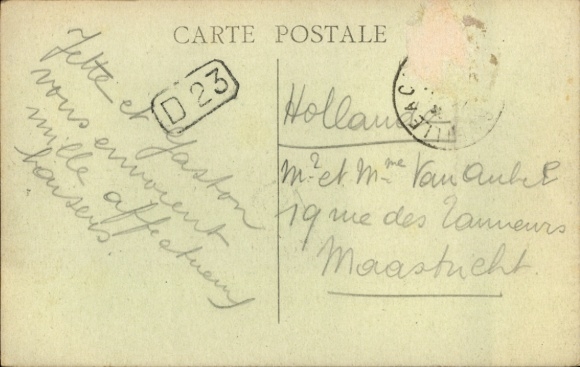 CARTE POSTALE
D 23
Jette et Gaston
vous envoient
mille affectueux
baisers
Holland
Mr et Mme Van Aubel
19 rue des Tanneurs
Maastricht.